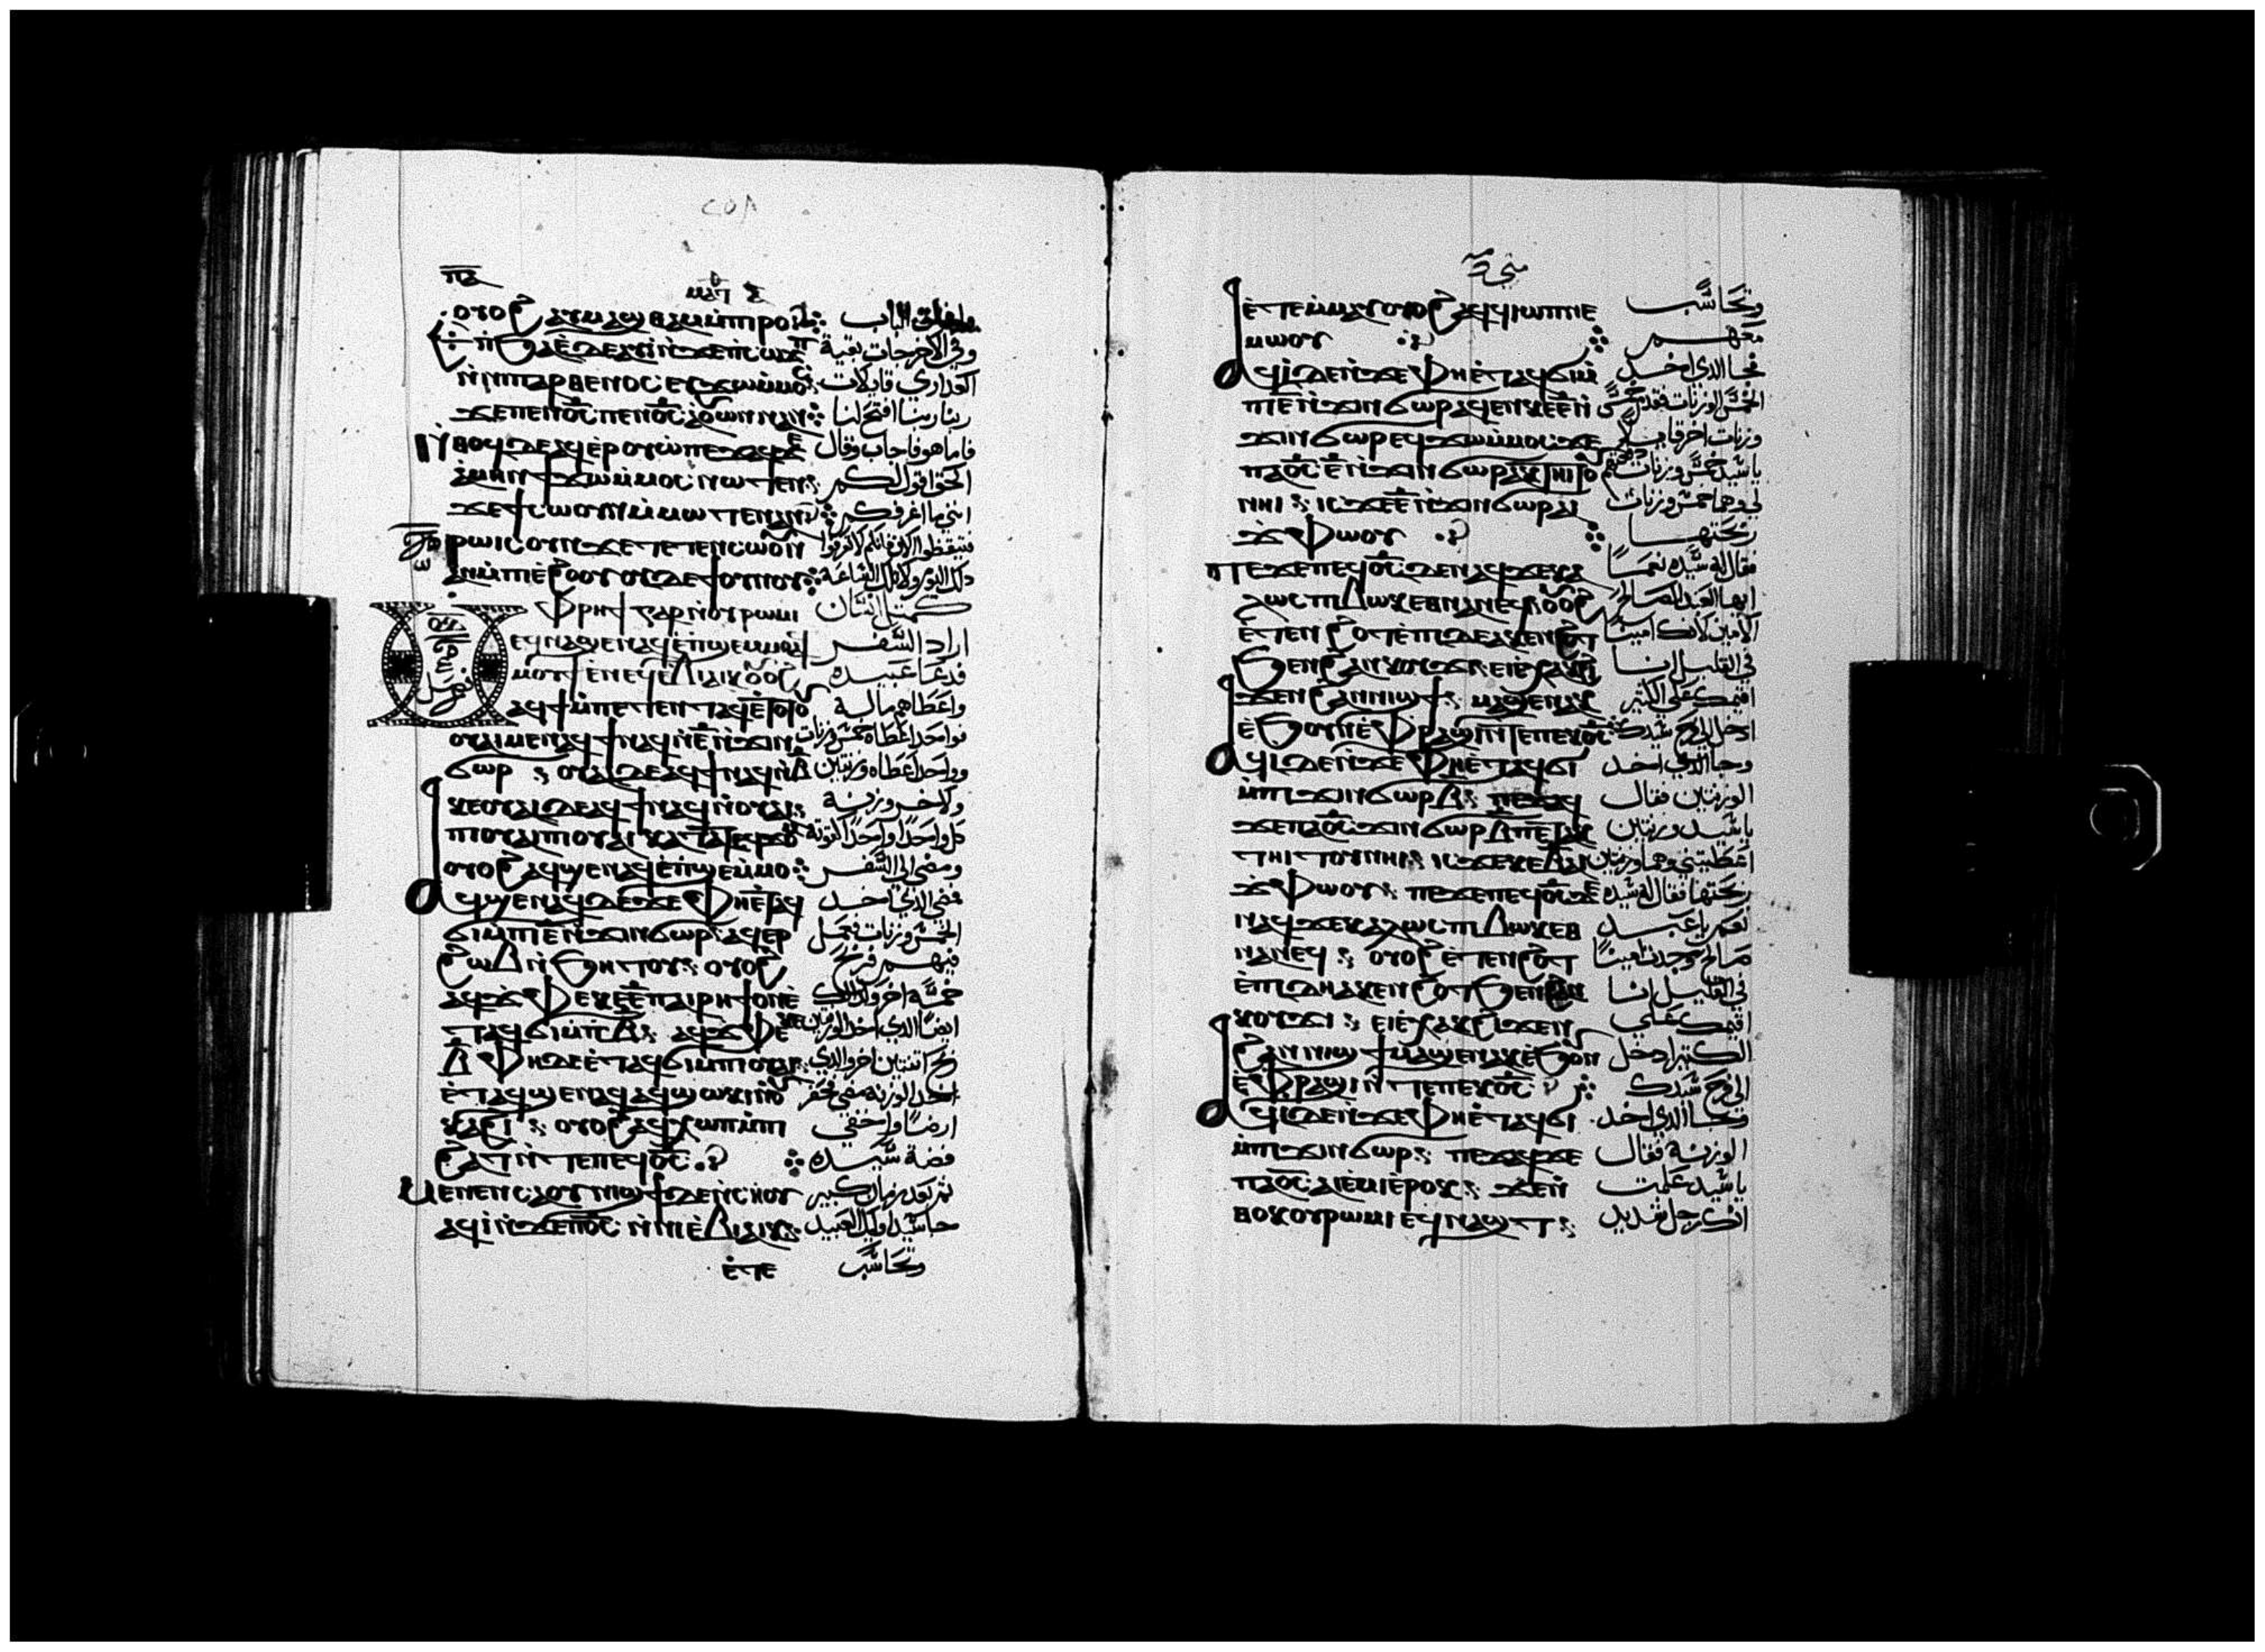 ⲡⲁ
ⲟⲩⲟϩ ⲁⲩⲙⲁϣⲑⲁⲙ ⲙ̀ⲡⲓⲣⲟ الباب
ⲛ̀ϧⲁⲉ̀ ⲇⲉ ⲁⲩⲓ̀ ⲛ̀ϫⲉ ⲡ̀ⲥⲱϫⲡ وفي الاخر جات بقية
ⲛ̀ⲛⲓⲡⲁⲣⲑⲉⲛⲟⲥ ⲉⲩϫⲱ ⲙ̀ⲙⲟⲥ العداري قايلات
ϫⲉ ⲡⲉⲛⲟ̅ⲥ̅ ⲡⲉⲛⲟ̅ⲥ̅ ⲁⲟⲩⲱⲛ ⲛⲁⲛ ربنا ربنا افتح لنا
ⲛ̀ⲑⲟϥ ⲇⲉ ⲁϥⲉⲣⲟⲩⲱ̀ ⲡⲉϫⲁϥ ϫⲉ فاما هو فاجاب وقال
ⲁⲙⲏⲛ ϯϫⲱ ⲙ̀ⲙⲟⲥ ⲛⲱⲧⲉⲛ الحق اقول لكم
ϫⲉ ϯⲥⲱⲟⲩⲛ ⲙ̀ⲙⲱⲧⲉⲛ ⲁⲛ انني ما اعرفكم
ⲣⲱⲓⲥ ⲟⲩⲛ ϫⲉ ⲧⲉⲧⲉⲛⲥⲱⲟⲩⲛ
ⲁⲛ ⲙ̀ⲡⲓⲉ̀ϩⲟⲟⲩ ⲟⲩⲇⲉ ϯⲟⲩⲛⲟⲩ ذلك اليوم ولا تلك الساعة
ⲙ̀ⲫⲣⲏϯ ⲅⲁⲣ ⲛ̀ⲟⲩⲣⲱⲙⲓ كمثل انسان
ⲉϥⲛⲁϣⲉⲛⲁϥ ⲉ̀ⲡϣⲉⲙⲙⲟ ⲁϥ اراد السفر
ⲙⲟⲩϯ ⲉ̀ⲛⲉϥⲉ̀ⲃⲓⲁⲓⲕ ⲟⲩⲟϩ فدعا عبيده
ⲁϥϯ ⲙ̀ⲡⲉⲧⲉⲛⲧⲁϥ ⲉ̀ⲧⲟⲧⲟⲩ واعطاهم ماله
ⲟⲩⲁⲓ ⲙⲉⲛ ⲁϥϯ ⲛⲁϥ ⲛ̀ⲉ̅ ⲛ̀ϫⲓⲛ فواحد اعطاه خمس وزنات
ϭⲱⲣ ⲟⲩⲁⲓ ⲇⲉ ⲁϥϯ ⲛⲁϥ ⲛ̀ⲃ̅ وواحد اعطاه وزنتين
ⲕⲉⲟⲩⲁⲓ ⲇⲉ ⲁϥϯ ⲛⲁϥ ⲛ̀ⲟⲩⲁⲓ ولاخر وزنة
ⲡⲓⲟⲩⲁⲓ ⲡⲓⲟⲩⲁⲓ ⲕⲁⲧⲁ ⲧⲉϥϫⲟⲙ
ⲟⲩⲟϩ ⲁϥϣⲉⲛⲁϥ ⲉ̀ⲡϣⲉⲙⲙⲟ ومضى الى السفر
ⲁϥϣⲉⲛⲁϥ ⲇⲉ ⲛ̀ϫⲉ ⲫⲏ ⲉ̀ⲧⲁϥ فمضى الذي اخد
ϭⲓ ⲙ̀ⲡⲓⲉ̅ ⲛ̀ϫⲓⲛϭⲱⲣ ⲁϥⲉⲣ الخمس وزنات فعمل
ϩⲱⲃ ⲛ̀ϧⲏⲧⲟⲩ ⲟⲩⲟϩ فيهم فربح
ⲁϥϫⲫⲉ ⲕⲉⲉ̅ ⲡⲁⲓⲣⲏϯ ⲟⲛ ⲉ̀ خمسة اخر وكذلك
ⲧⲁϥϭⲓ ⲙ̀ⲡⲓⲃ̅ ⲁϥϫⲫⲉ ⲕⲉ ايضا الذي اخد الوزنتين
ⲃ̅ ⲫⲏ ⲇⲉ ⲉ̀ⲧⲁϥϭⲓ ⲙ̀ⲡⲓⲟⲩⲁⲓ ربح اتنتين اخر والذي
ⲉ̀ⲧⲁϥϣⲉⲛⲁϥ ⲁϥϣⲱⲕⲓ ⲛ̀ⲟⲩ اخد الوزنة مضى حفر
ⲕⲁϩⲓ ⲟⲩⲟϩ ⲁϥⲭⲱⲡ ⲙ̀ⲡⲓ ارضا واخفى
ϩⲁⲧ ⲛ̀ⲧⲉ ⲡⲉϥⲟ̅ⲥ̅ فضة سيده
ⲙⲉⲛⲉⲛⲥⲁ ⲟⲩⲛⲓϣϯ ⲇⲉ ⲛ̀ⲥⲏⲟⲩ ثم بعد زمان كبير
ⲁϥⲓ̀ ⲛ̀ϫⲉ ⲡⲟ̅ⲥ̅ ⲛ̀ⲛⲓⲉ̀ⲃⲓⲁⲓⲕ جا سيد اوليك العبيد
ⲉ̀ⲧⲉ وتحاسب
ⲉ̀ⲧⲉⲙ̀ⲙⲁⲩ ⲟⲩⲟϩ ⲁϥϥⲓⲱⲡ ⲛⲉ وتحاسب
ⲙⲱⲟⲩ معهم
ⲁϥⲓ̀ ⲇⲉ ⲛ̀ϫⲉ ⲫⲏ ⲉ̀ⲧⲁϥϭⲓ ⲙ̀ فجا الذي اخد
ⲡⲓⲉ̅ ⲛ̀ϫⲓⲛϭⲱⲣ ⲁϥⲉⲛ ⲕⲉⲉ̅ ⲛ̀ الخمس الوزنات فقدم خمس
ϫⲓⲛϭⲱⲣ ⲉϥϫⲱ ⲙ̀ⲙⲟⲥ ϫⲉ وزنات اخر قايلا
ⲡⲁⲟ̅ⲥ̅ ⲉ̅ ⲛ̀ϫⲓⲛϭⲱⲣ ⲁⲕⲧⲏⲓⲧⲟⲩ يا سيد خمس وزنات
ⲛⲏⲓ ⲓⲥ ⲕⲉⲉ̅ ⲛ̀ϫⲓⲛϭⲱⲣ ⲁⲓ لي وها خمس وزنات
ϫⲫⲱⲟⲩ ربحتها
ⲡⲉϫⲉ ⲡⲉϥⲟ̅ⲥ̅ ⲇⲉ ⲛⲁϥ ϫⲉ ⲕⲁ فقال له سيده نعما
ⲗⲱⲥ ⲡⲓⲃⲱⲕ ⲉⲑⲛⲁⲛⲉϥ ⲟⲩⲟϩ ايها العبد الصالح
ⲉ̀ⲧⲉⲛϩⲟⲧ ⲉ̀ⲡⲓⲇⲏ ⲁⲕⲉⲛϩⲟⲧ الامين لانك امينا
ϧⲉⲛ ϩⲁⲛⲕⲟⲩϫⲓ ⲉⲓⲉ̀ⲭⲁⲕ ϩⲓ في القليل انا
ϫⲉⲛ ϩⲁⲛⲛⲓϣϯ ⲙⲁϣⲉⲛⲁⲕ اقيمك على الكثير
ⲉ̀ϧⲟⲩⲛ ⲉ̀ⲫⲣⲁϣⲓ ⲛ̀ⲧⲉ ⲡⲉⲕⲟ̅ⲥ̅ ادخل الى فرح سيدك
ⲁϥⲓ̀ ⲇⲉ ⲛ̀ϫⲉ ⲫⲏ ⲉ̀ⲧⲁϥϭⲓ وجا الذي اخد
ⲙ̀ⲡⲓϫⲓⲛϭⲱⲣ ⲃ̅ ⲡⲉϫⲁϥ الوزنتين فقال
ϫⲉ ⲡⲁⲟ̅ⲥ̅ ϫⲓⲛϭⲱⲣ ⲃ̅ ⲡⲉⲧⲁⲕ يا سيد وزنتين
ⲧⲏⲓⲧⲟⲩ ⲛⲏⲓ ⲓⲥ ⲕⲉⲃ̅ ⲁⲓ اعطيتني وها وزنتين
ϫⲫⲱⲟⲩ ⲡⲉϫⲉ ⲡⲉϥⲟ̅ⲥ̅ ⲇⲉ ربحتها فقال له سيده
ⲛⲁϥ ϫⲉ ⲕⲁⲗⲱⲥ ⲡⲓⲃⲱⲕ ⲉⲑ نعم يا عبد
ⲛⲁⲛⲉϥ ⲟⲩⲟϩ ⲉ̀ⲧⲉⲛϩⲟⲧ
ⲉ̀ⲡⲓⲇⲏ ⲁⲕⲉⲛϩⲟⲧ ϧⲉⲛ ϩⲁⲛ في القليل انا
ⲕⲟⲩϫⲓ ⲉⲓⲉ̀ⲭⲁⲕ ϩⲓϫⲉⲛ اقيمك على
ϩⲁⲛⲛⲓϣϯ ⲙⲁϣⲉⲛⲁⲕ ⲉ̀ϧⲟⲩⲛ الكثير ادخل
ⲉ̀ⲫⲣⲁϣⲓ ⲛ̀ⲧⲉ ⲡⲉⲕⲟ̅ⲥ̅ الى فرح سيدك
ⲁϥⲓ̀ ⲇⲉ ⲛ̀ϫⲉ ⲫⲏ ⲉ̀ⲧⲁϥϭⲓ وجا الذي اخد
ⲙ̀ⲡⲓϫⲓⲛϭⲱⲣ ⲡⲉϫⲁϥ ϫⲉ الوزنة فقال
ⲡⲁⲟ̅ⲥ̅ ⲁⲓⲉ̀ⲙⲓ ⲉ̀ⲣⲟⲕ ϫⲉ ⲛ̀ يا سيد علمت
ⲑⲟⲕ ⲟⲩⲣⲱⲙⲓ ⲉϥⲛⲁϣⲧ انك رجل شديد